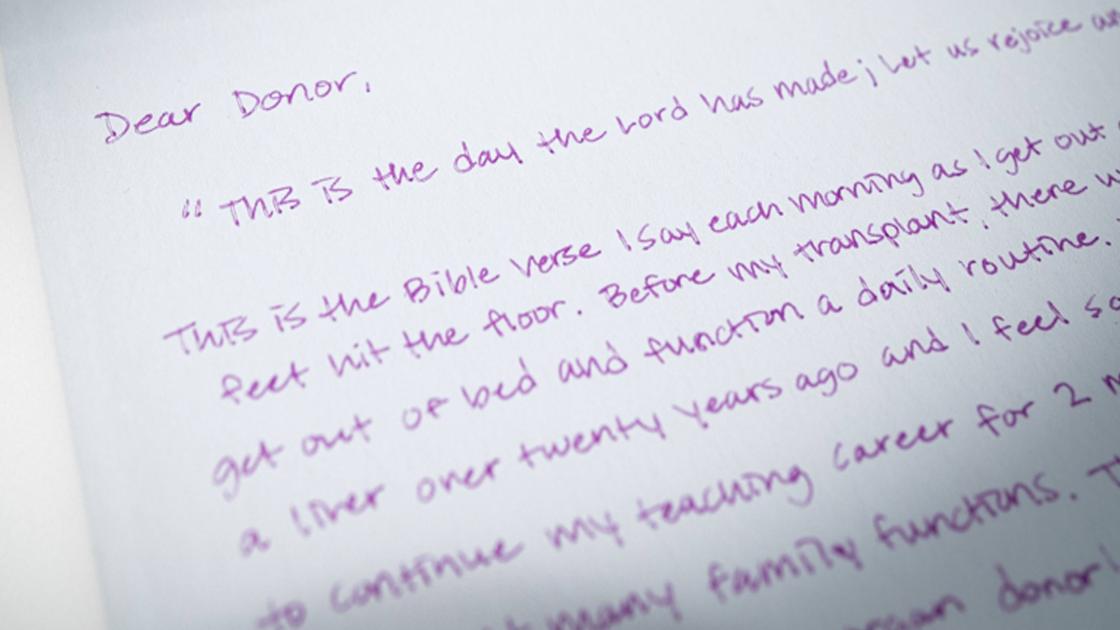 Dear Donor,
" This is the day the Lord has made; Let us rejoice
This is the Bible verse I say each morning as I get out
feet hit the floor. Before my transplant, there
get out of bed and function a daily routine.
a liver over twenty years ago and I feel
to continue my teaching career for 2
many family functions.
donor!